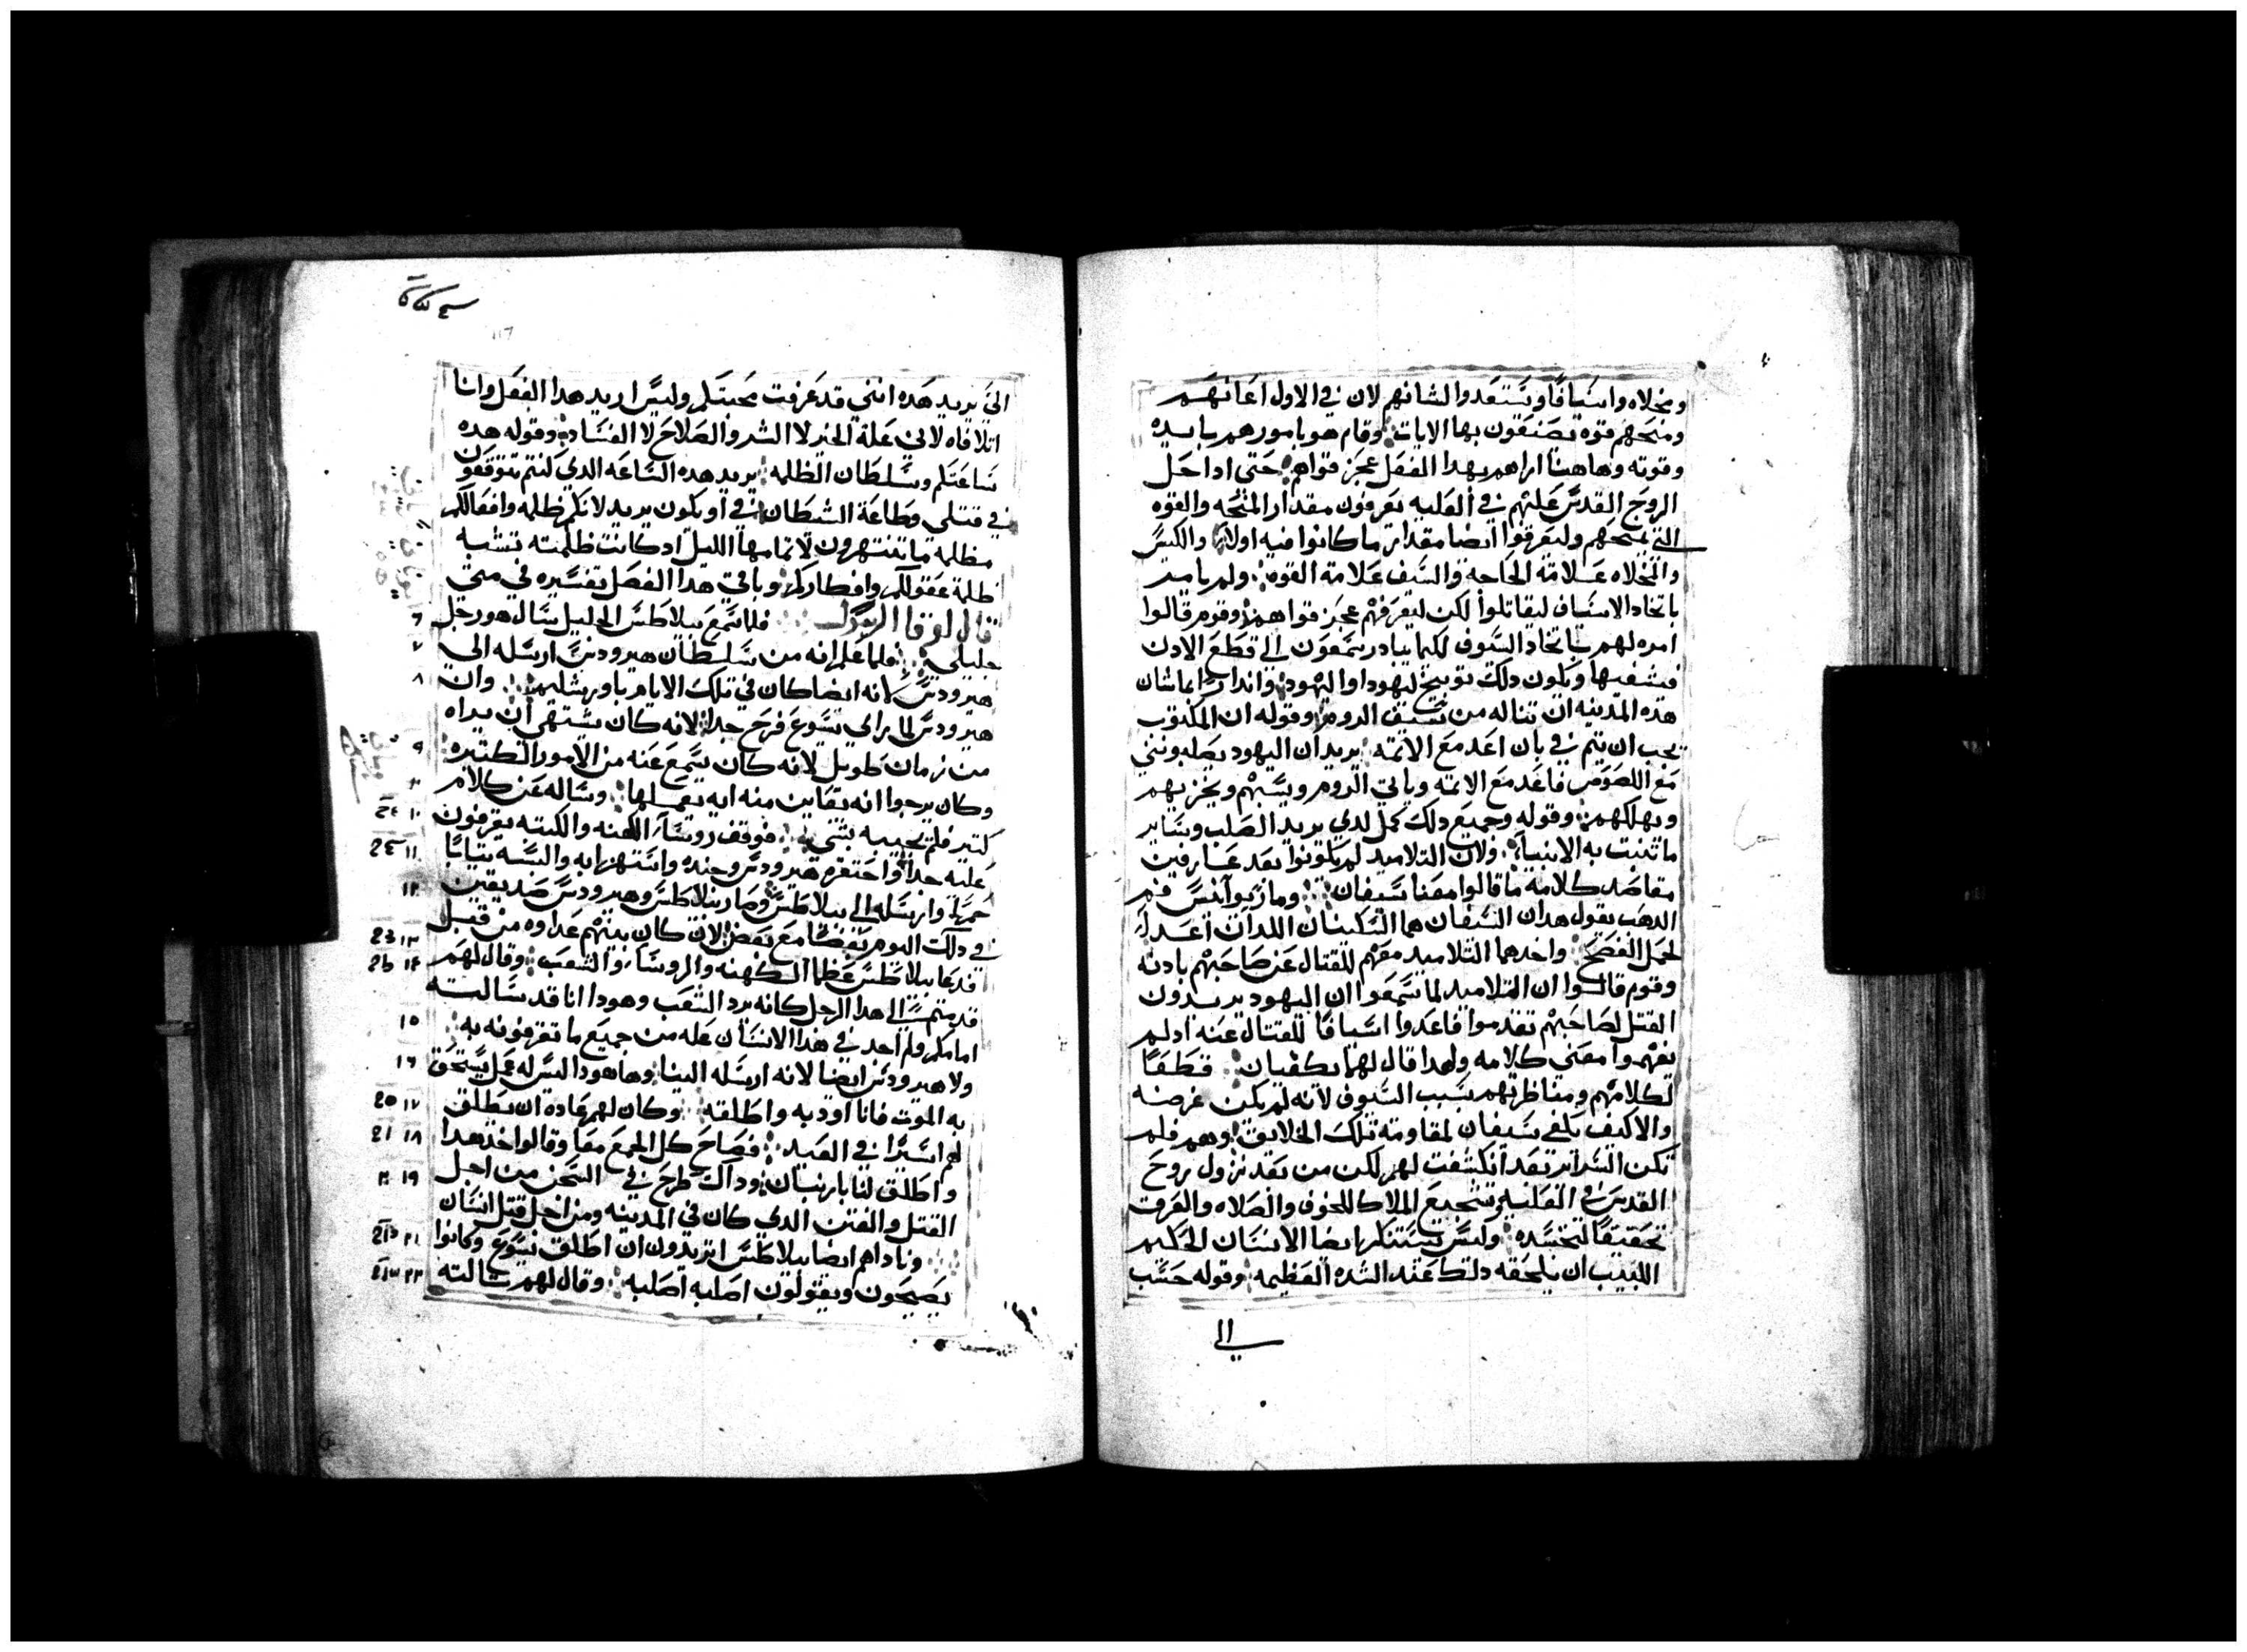 ومخلاه واسيافًا ويستعدوا لشانهم لان في الاول اعانهم
ومنحهم قوه يصنعون بها الايات وقام هو بامورهم بايده
وقوته وهاهنا اراهم بهدا الفعل عجز قواهم حتى ادا حل
الروح القدس عليهم في العليه يعرفون مقدار المنحه والقوه
التي يمنحهم وليعرفوا ايضا مقدار ما كانوا فيه اولا والكيس
والمخلاه علامة الحاجة والسيف علامة القوه ولم يامر
باتخاد الاسياف ليقاتلوا لكن ليعرفهم عجز قواهم وقوم قالوا
امره لهم باتخاد السيوف لكيما يبادر سمعون الى قطع الادن
فيشفيها ويكون دلك توبيخ ليهودا واليهود واندارًا بما شان
هده المدينه ان تناله من سيف الروم وقوله ان المكتوب
يجب ان يتم في بان اعد مع الاتمه يريد ان اليهود يصلبونني
مع اللصوص فاعد مع الاتمه وياتي الروم ويسبهم ويخزيهم
ويهلكهم وقوله وجميع دلك كمل لدي يريد الصلب وساير
ما تنبت به الانبيا ولان التلاميد لم يكونوا بعد عارفين
مقاصد كلامه ما قالوا معنا سيفان وماريوانس فم
الدهب يقول هدان السيفان هما السكينان اللدان اعد
لحمل الفصح واخدهما التلاميد معهم للقتال عن صاحبهم بادنه
وقوم قالوا ان التلاميد لما سمعوا ان اليهود يريدون
القتل لصاحبهم تقدموا فاعدوا اسيافا للقتال عنه ادلم
يفهموا معني كلامه ولهدا قال لهما يكفيان قطعًا
لكلامهم ومناظرتهم بسبب السيوف لانه لم يكن غرضه
والا كيف يكفي سيفان لمقاومة تلك الخلايق وهم فلم
تكن السراير بعد انكشفت لهم لكن من بعد نزول روح
القدس في العليه وتشجيع الملاك للخوف والصلاه والعرق
تحقيقًا لتجسده وليس يستنكر ايضا الانسان الحكيم
اللبيب ان يلحقه دلك عند الشده العظيمه وقوله حسب
الي
الي يريد هده انني قد عرفت محبتكم وليس اريد هدا الفعل وانا
اتلافاه لاني علة الخير لا الشر والصلاح لا الفساد وقوله هده
ساعتكم وسلطان الظلمه يريد هده الساعه الدي كنتم تتوقعون
في قتلي وطاعة الشيطان في او يكون يريد لانكم ظلمه وافعالكم
مظلمه ما تنتهرون لاتمامها الليل ادكانت ظلمته تشبه
ظلمة عقولكم وافكاركم وباقي هدا الفصل تفسيره في متي
قال لوقا الرسول فلما سمع بيلاطس الجليل سال هو رجل ٦
جليلي فلما علم انه من سلطان هيرودس ارسله الى ٧
هيرودس لانه ايضا كان في تلك الايام باورشليم وان ٨
هيرودس لما راى يسوع فرح جدا لانه كان يشتهي ان يراه
من زمان طويل لانه كان يسمع عنه من الامور الكتيره ٩
وكان يرجوا انه يعاين منه ايه يعملها وساله عن كلام
كتير فلم يجيبه بشي فوقف روسا الكهنه والكتبه يقرفون ١٠
عليه جدا واحتقره هيرودس وجنده واستهزا به والبسه تيابًا ١١
حمرا وارسله الى بيلاطس وصار بيلاطس وهيرودس صديقين ١٢
في دلك اليوم بعضًا مع بعض لان كان بينهم عداوه من قبل
فدعا بيلاطس عظما الكهنه والروسا والشعب وقال لهم ١٣
قدمتم الى هدا الرجل كانه يرد الشعب وهودا انا قد سالته ١٤
امامكم ولم اجد في هذا الانسان عله من جميع ما تقرفونه به
ولا هيرودس ايضا لانه ارسله الينا وها هودا ليس له عمل يستحق ١٥
به الموت فانا اودبه واطلقه وكان لهم عاده ان يطلق ١٦ ١٧
لهم اسيرًا في العيد فصاح كل الجمع معا وقالوا خذ هدا ١٨
واطلق لنا بارنبان وداك طرح في السجن من اجل ١٩
القتل والفتن الدي كان في المدينه ومن اجل قتل انسان
وناداهم ايضا بيلاطس اتريدون ان اطلق يسوع وكانوا ٢١
يصيحون ويقولون اصلبه اصلبه وقال لهم تالته ٢٢